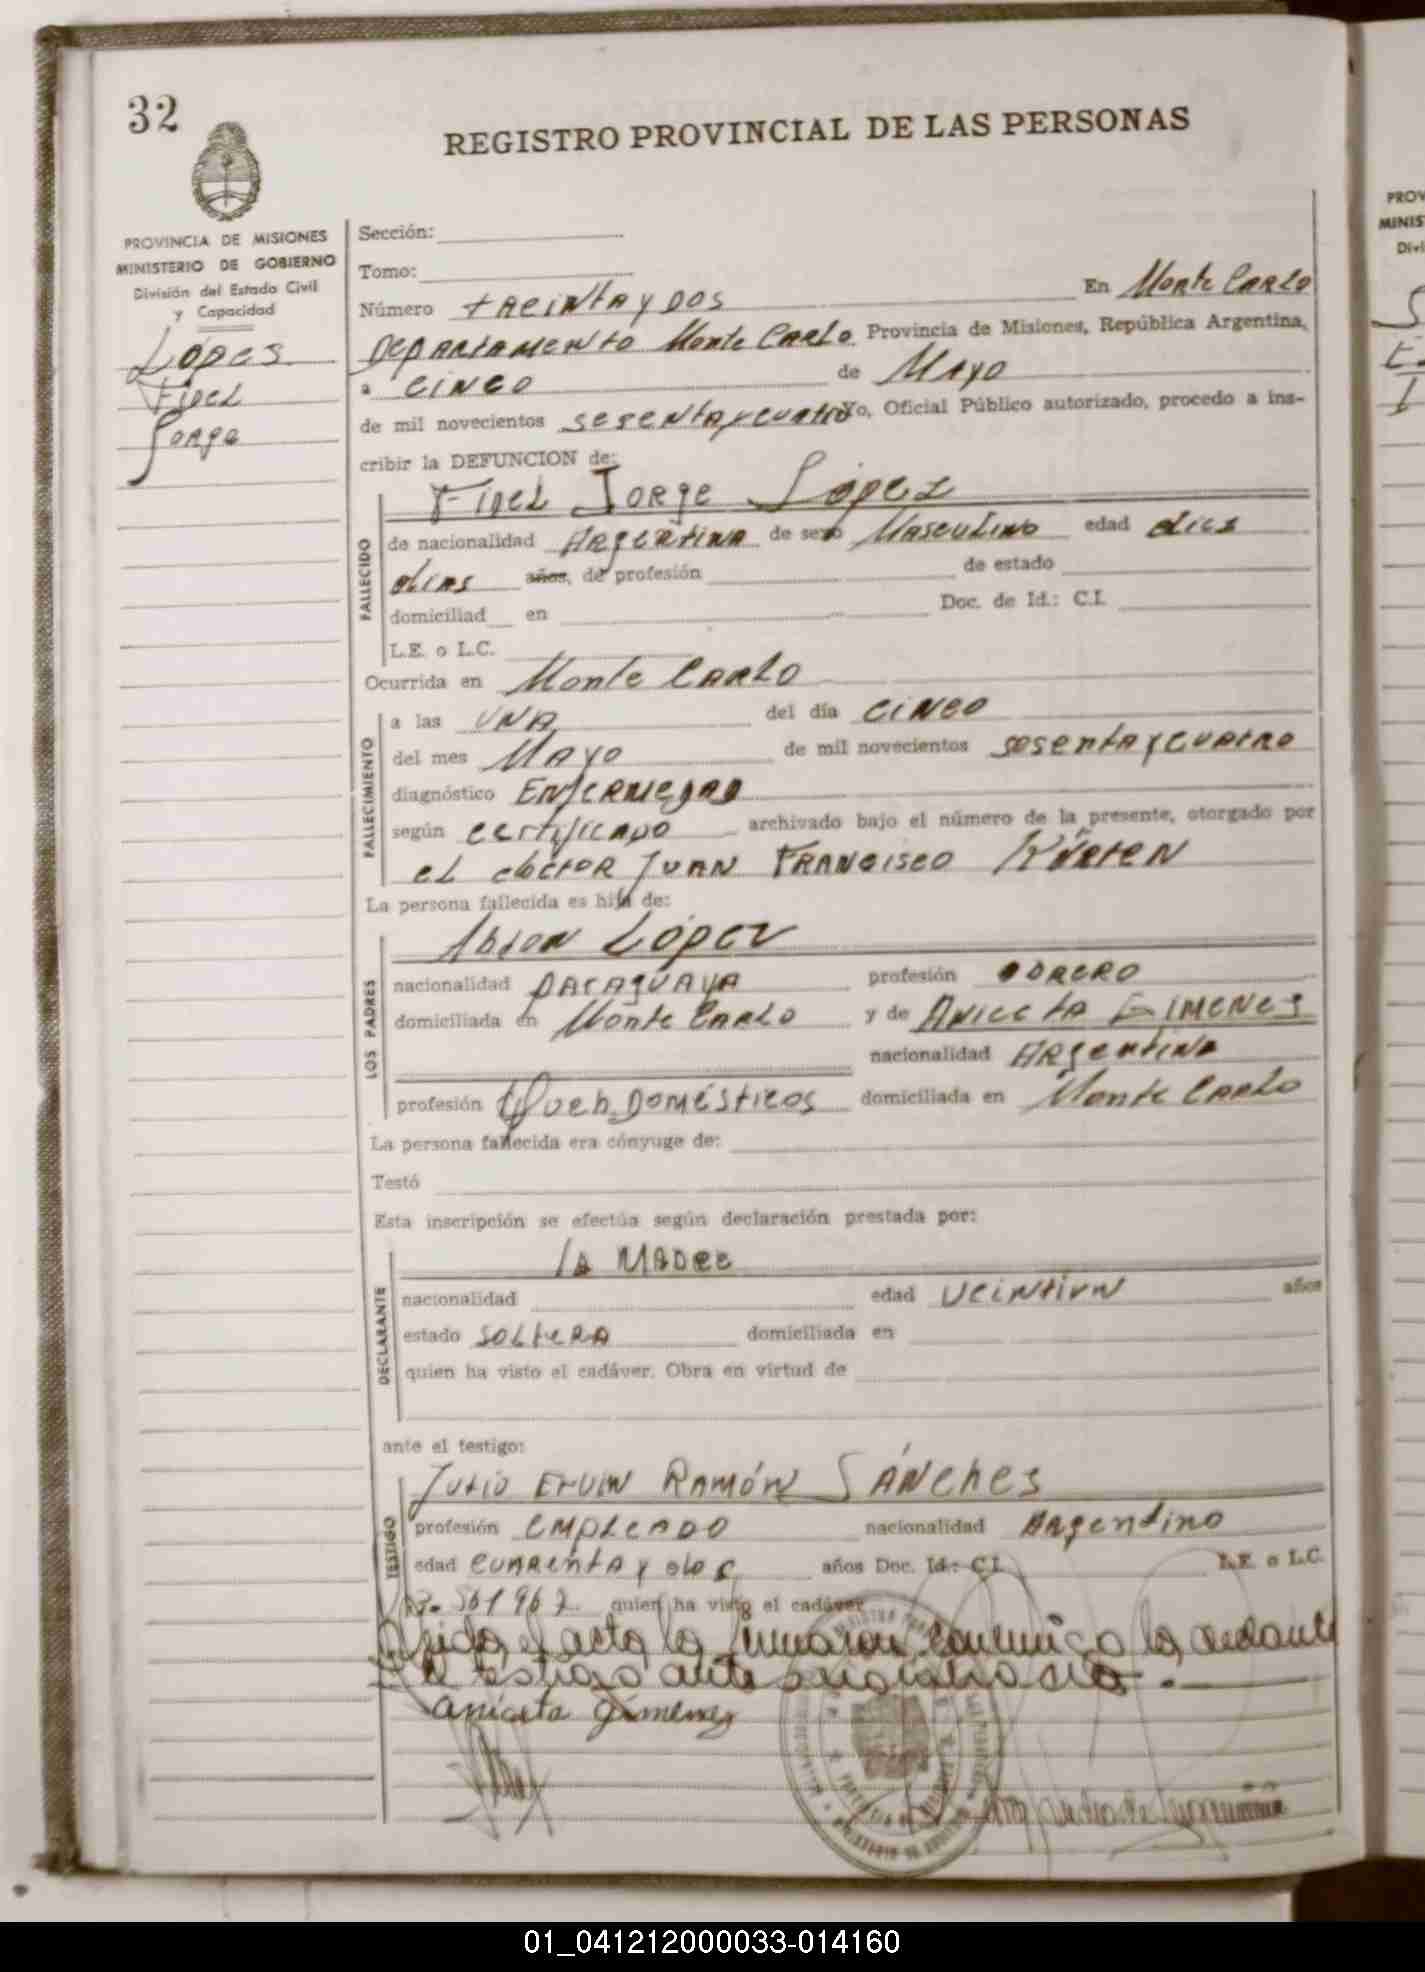 32
REGISTRO PROVINCIAL DE LAS PERSONAS
PROVINCIA DE MISIONES
MINISTERIO DE GOBIERNO
División del Estado Civil
y Capacidad
López
Fidel
Jorge
Sección:
Tomo:
Número treinta y dos En Monte Carlo
Departamento Monte Carlo Provincia de Misiones, República Argentina,
a cinco de Mayo
de mil novecientos sesenta y cuatro Yo, Oficial Público autorizado, procedo a ins-
cribir la DEFUNCION de:
Fidel Jorge López
FALLECIDO
de nacionalidad Argentina de sexo Masculino edad dies
dias años, de profesión de estado
domiciliad en Doc. de Id.: C.I.
L.E. o L.C.
Ocurrida en Monte Carlo
FALLECIMIENTO
a las una del día cinco
del mes Mayo de mil novecientos sesenta y cuatro
diagnóstico Enfermedad
según certificado archivado bajo el número de la presente, otorgado por
el doctor Juan Francisco Kürten
La persona fallecida es hijo de:
LOS PADRES
López
nacionalidad paraguaya profesión obrero
domiciliada en Monte Carlo y de Aniceta Gimenes
nacionalidad Argentina
profesión Queh. Domésticos domiciliada en Monte Carlo
La persona fallecida era cónyuge de:
Testó
Esta inscripción se efectúa según declaración prestada por:
DECLARANTE
la Madre
nacionalidad edad veintiun años
estado soltera domiciliada en
quien ha visto el cadáver. Obra en virtud de
ante el testigo:
TESTIGO
Julio Ervin Ramón Sánches
profesión empleado nacionalidad Argentino
edad cuarenta y dos años Doc. Id.: C.I. L.E. o L.C.
quien ha visto el cadáver
Leída el acta la firmaron conmigo la declarante
y el testigo ante
Aniceta Gimenez
01_041212000033-014160